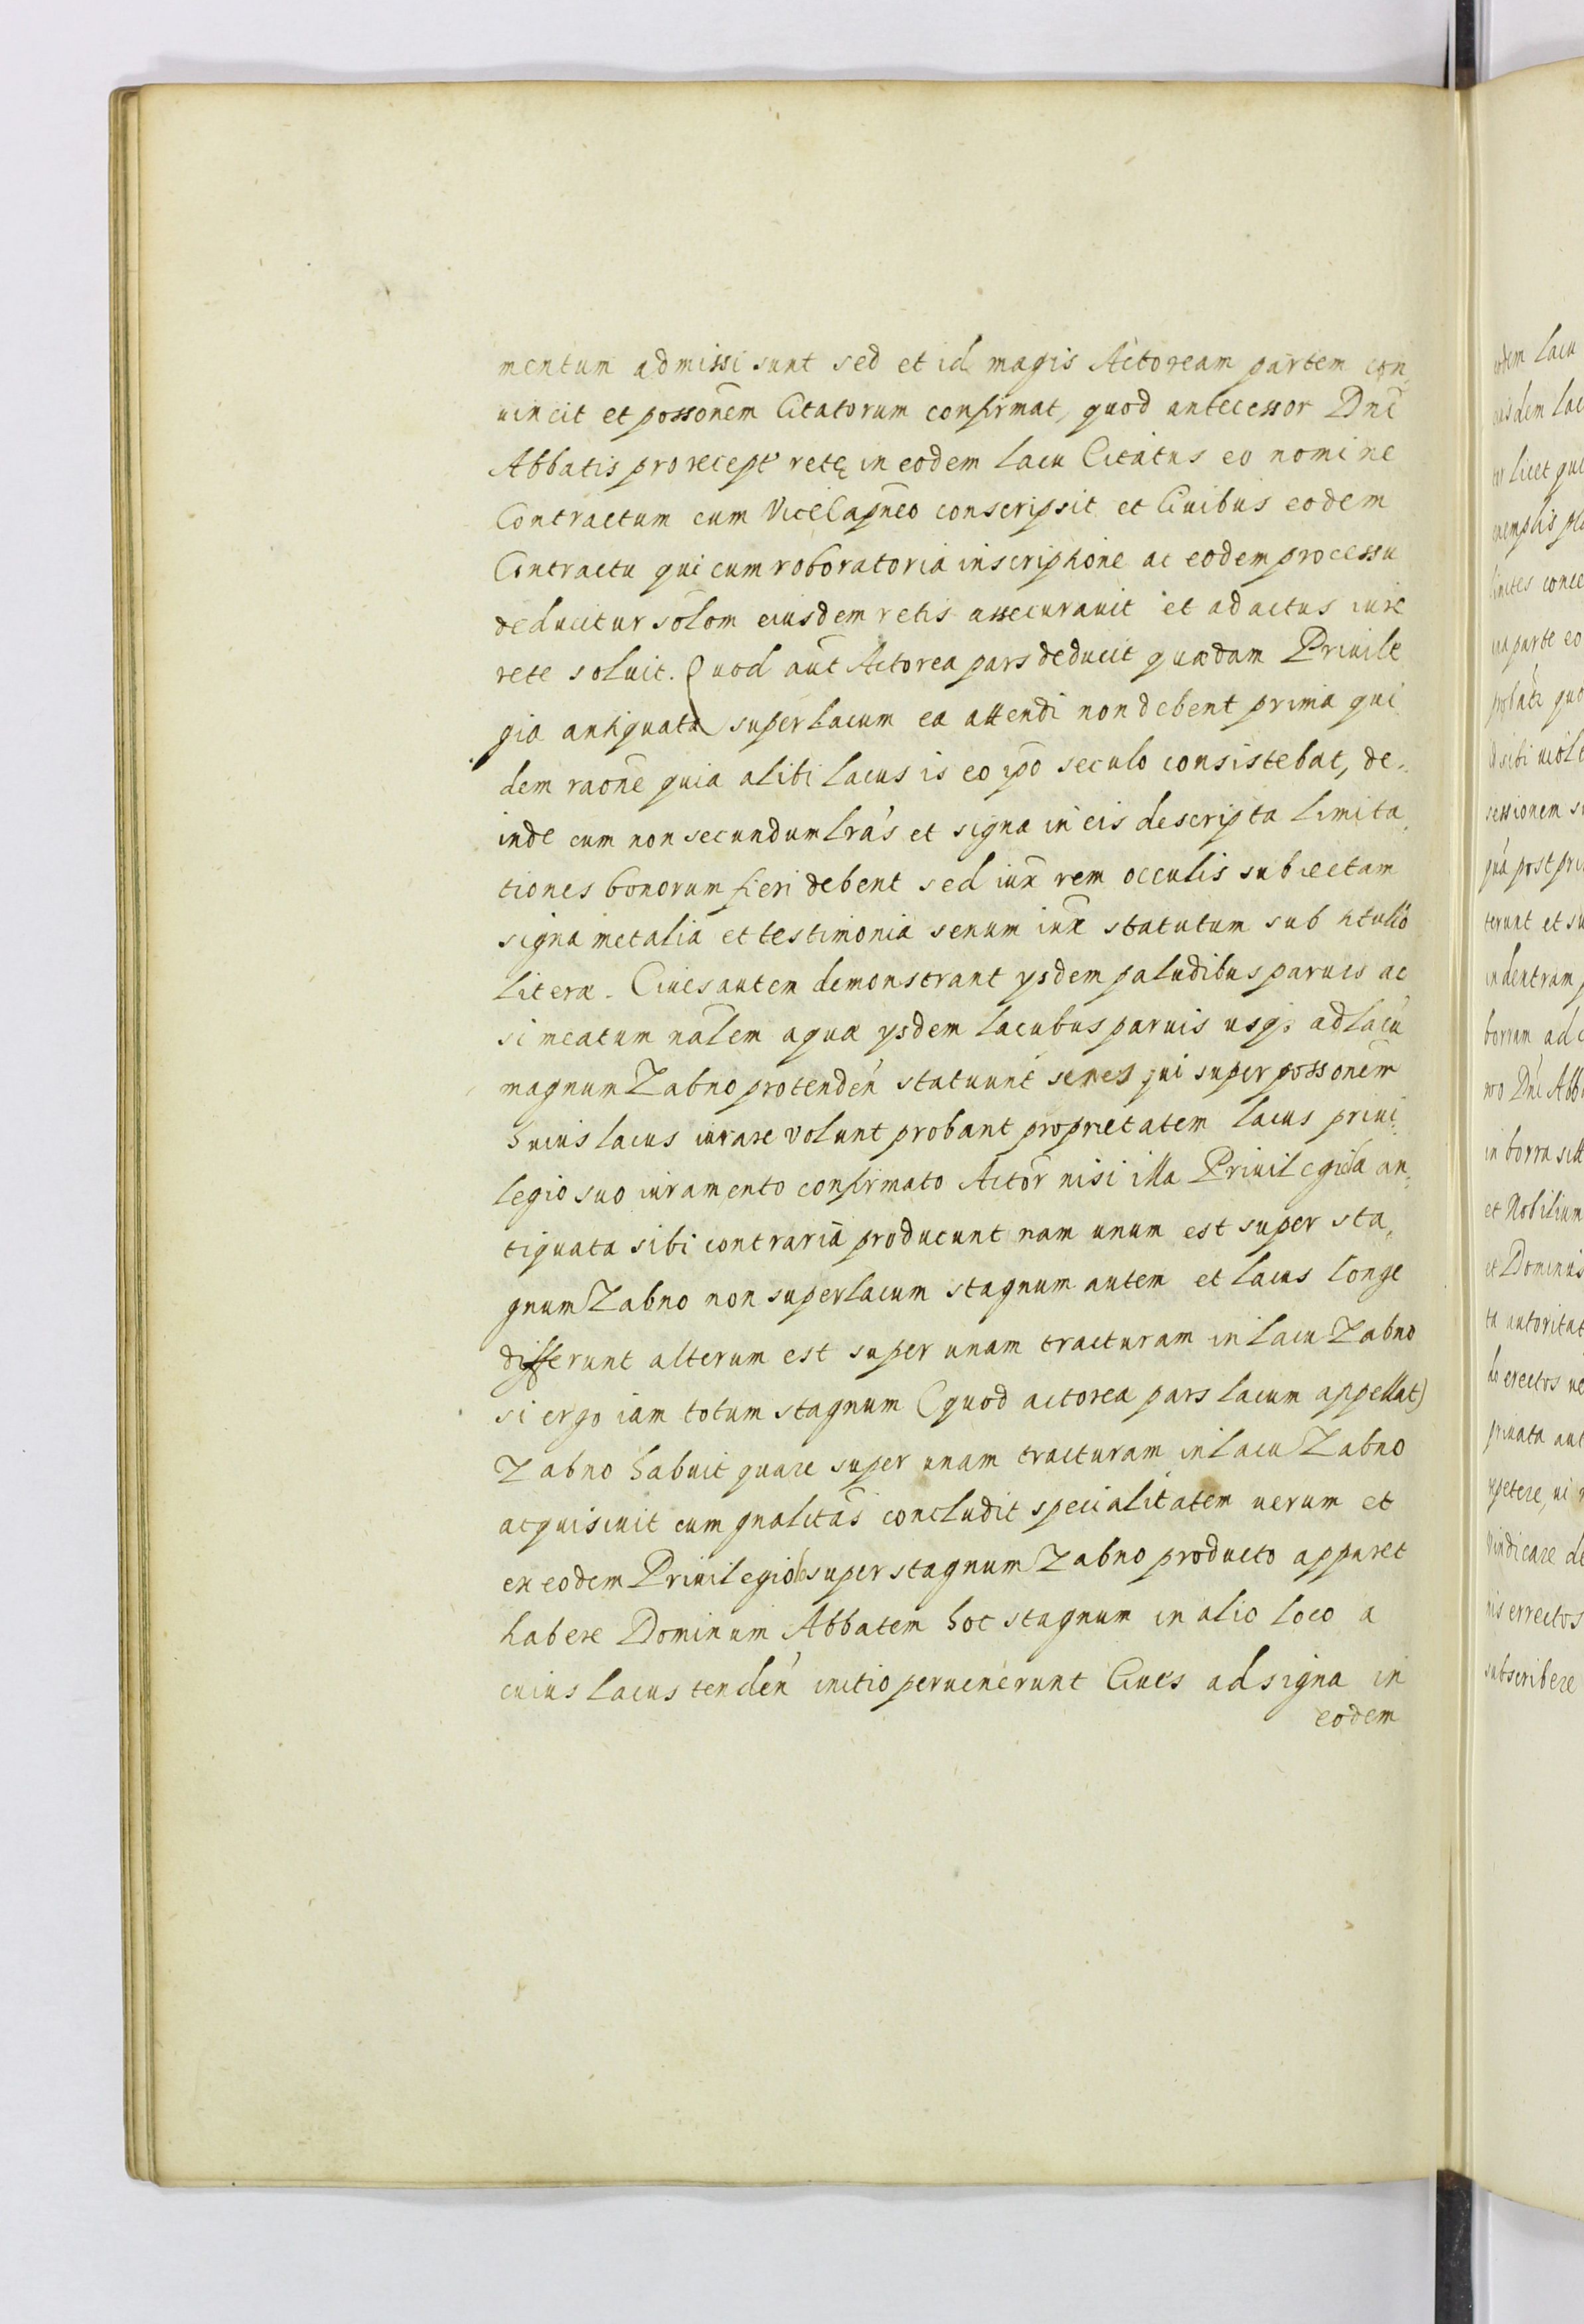 mentum admissi sunt sed et id magis Actoream partem con,
uincit et possonẽm Citatorum confirmat, quod antecessor Dnĩ
Abbatis pro recept' retę in eodem lacu Citatus eo nomine
Contractum cum ViceCapñeo conscripsit et Ciuibus eodem
Contractu qui cum roboratoria inscriptione ac eodem processu
deducitur solom eiusdem retis assecurauit et ad actus iure
rete soluit. Quod aũt Actorea pars deducit quædam Priuile
gia antiquata super lacum ea attendi non debent prima qui
dem raonẽ quia alibi lacus is eo ipõ seculo consistebat, de,
inde cum non secundum lrás et signa in eis descripta limita,
tiones bonorum fieri debent sed iux̃ rem occulis subiectam
signa metalia et testimonia senum iux̃ statutum sub titullo
literæ. Ciues autem demonstrant ysdem paludibus paruis ac
si meatum nãlem aquæ ysdem lacubus paruis usq; ad lacũ
magnum Zabno protendeń statuunt senes qui super possonẽm
huius lacus iurare volunt probant proprietatem lacus priui,
legio suo iuramento confirmato Actor nisi illa Priuilegia an,
tiquata sibi contraria producunt nam unum est super sta,
gnum Zabno non super lacum stagnum autem et lacus longe
differunt alterum est super unam tracturam in lacu Zabno
si ergo iam totum stagnum (quod actorea pars lacum appellat)
Zabno habuit quare super unam tracturam in lacu Zabno
acquisiuit cum gnalitãs concludit specialitatem uerum et
ex eodem Priuilegio super stagnum Zabno producto apparet
habere Dominum Abbatem hoc stagnum in alio loco a
cuius lacus tendeń initio peruenerunt Ciues ad signa in
eodem